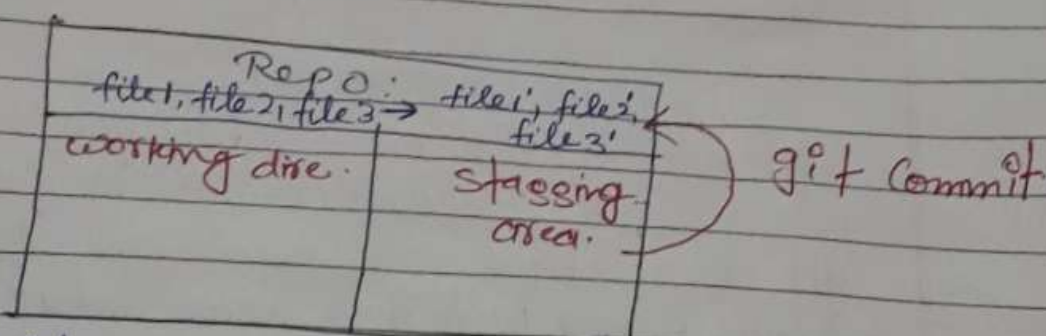 Repo:
file1, file2, file3 → file1', file2',
file3'
working dire.
stagging
area.
git Commit